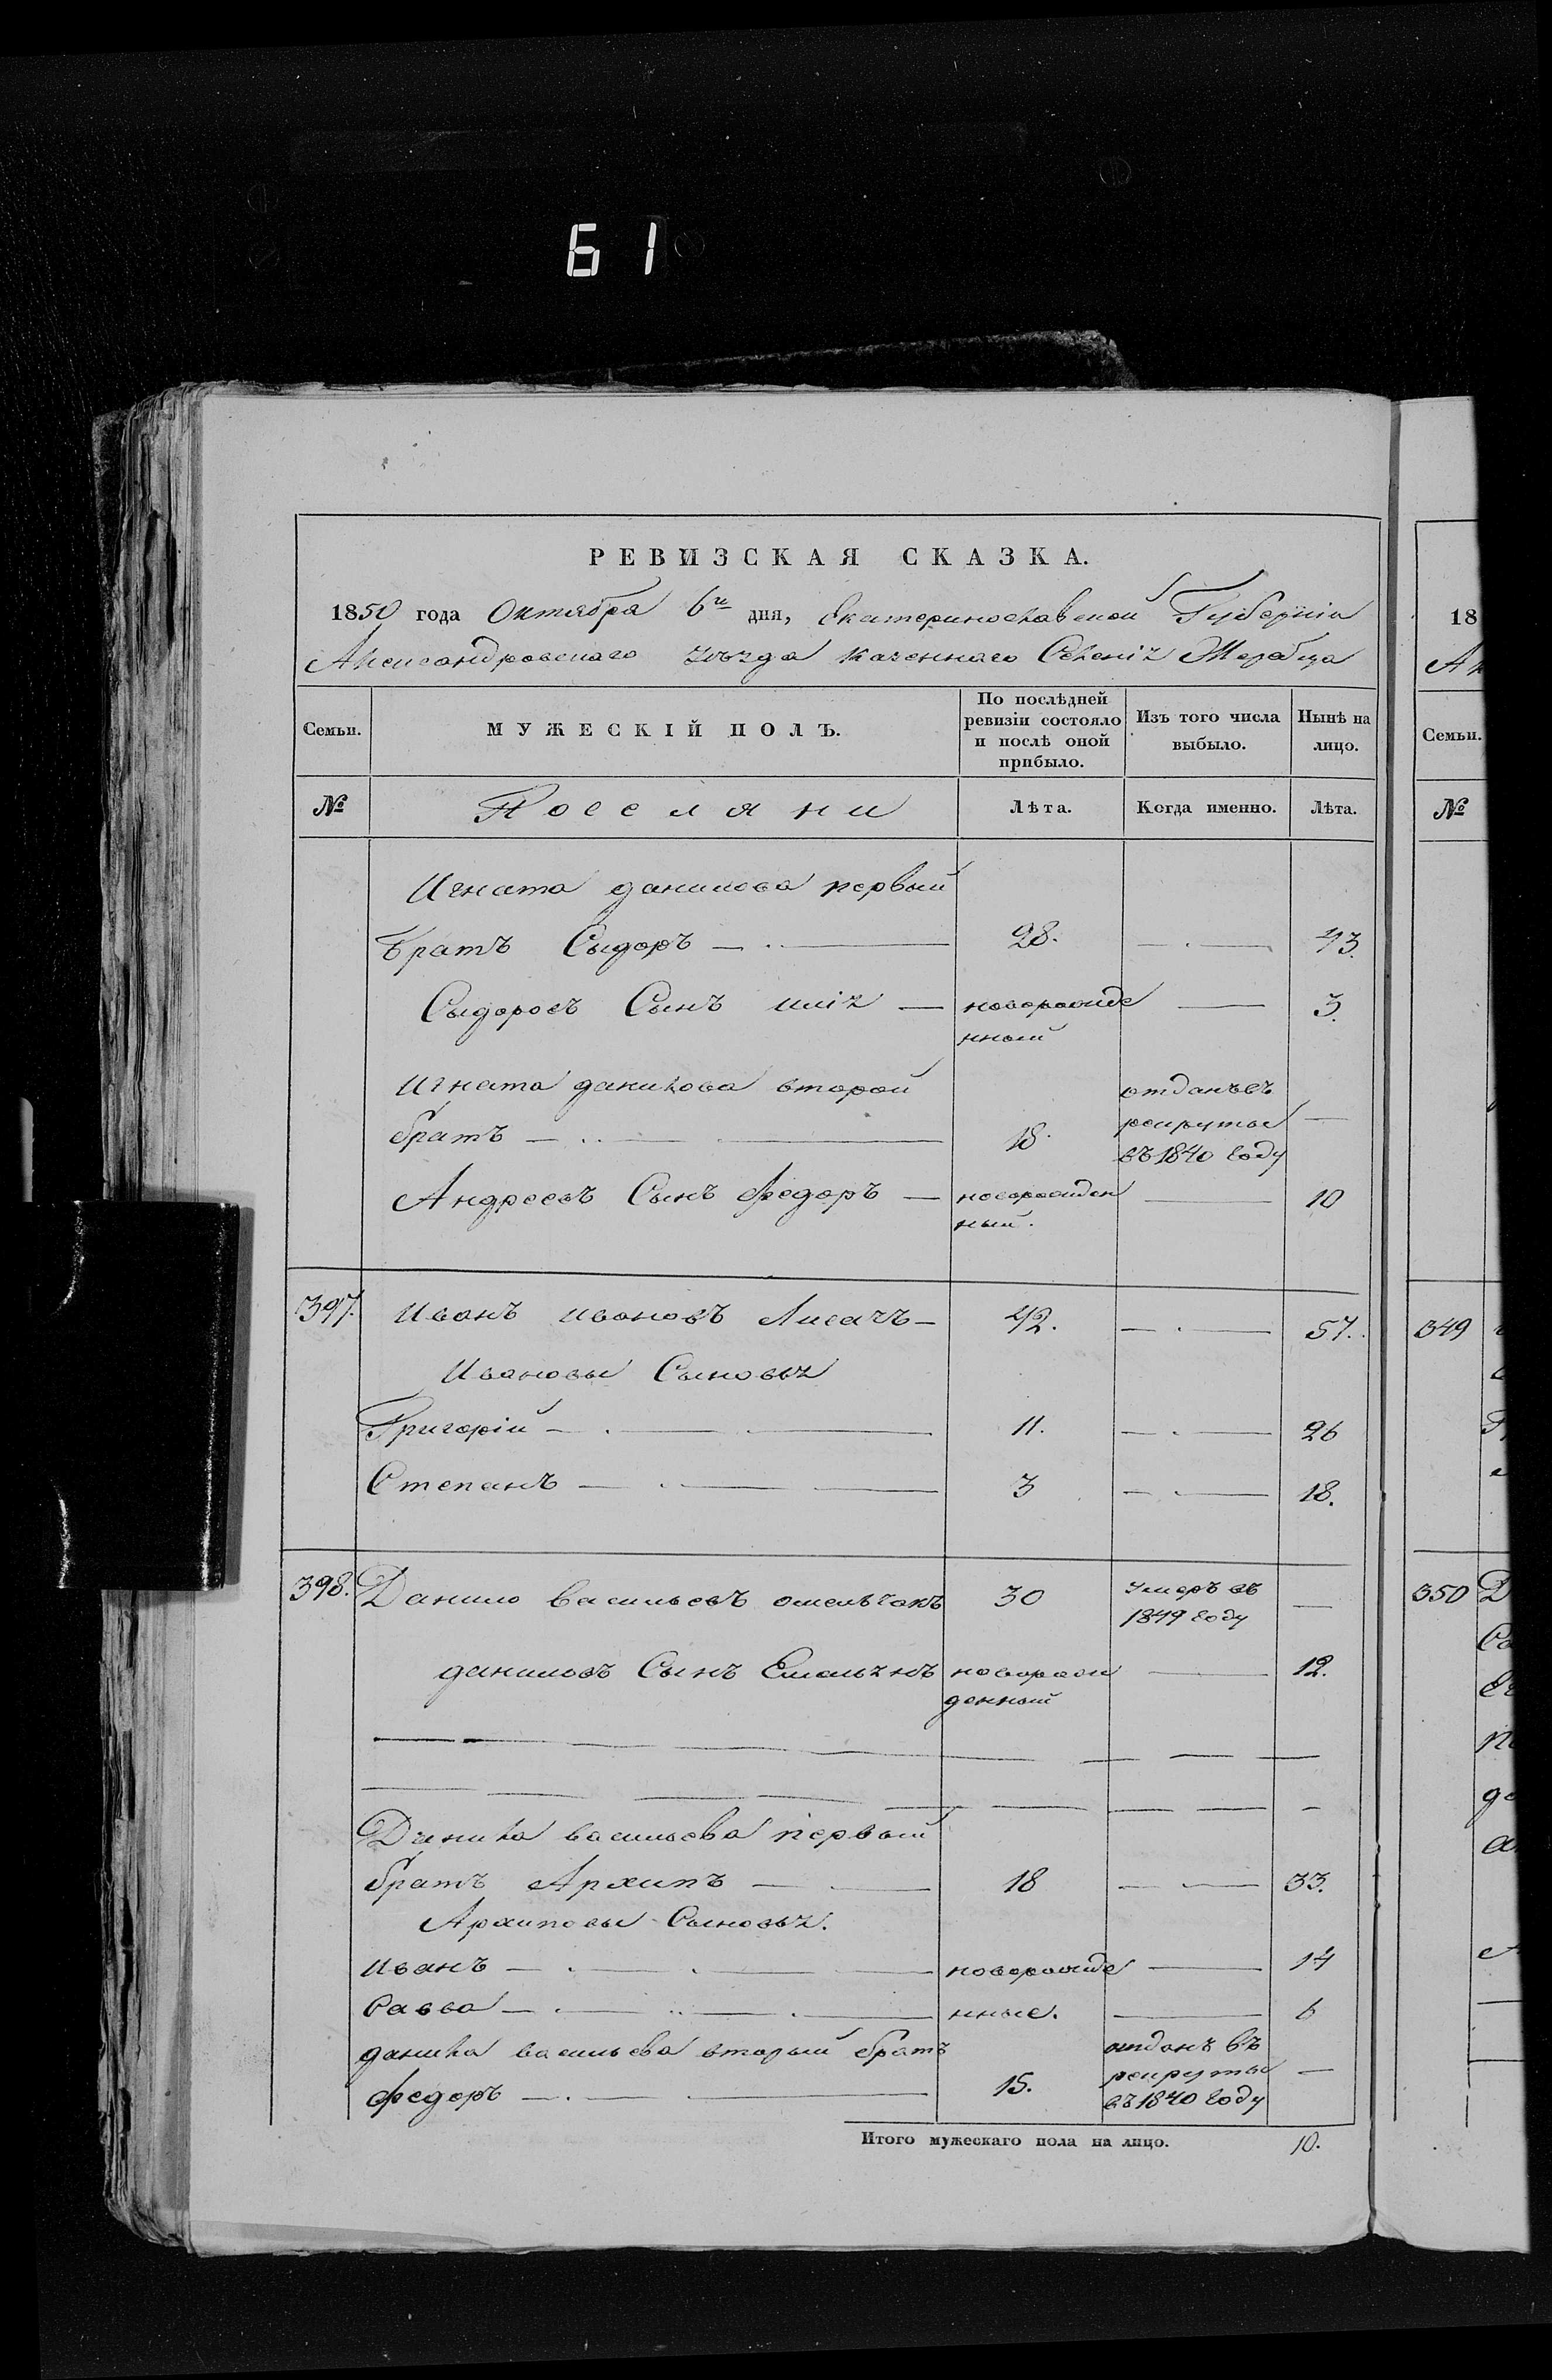 61
РЕВИЗСКАЯ СКАЗКА.
1850 года Октября 6го дня, Екатеринославской Губерніи
Александровскаго уѣзда казеннаго Селенія Жеребца
Семьи. МУЖЕСКІЙ ПОЛЪ. По послѣдней ревизіи состояло и послѣ оной прибыло. Изъ того числа выбыло. Нынѣ на лицо.
№ Поселяни Лѣта. Когда именно. Лѣта.
Игната данилова первый
братъ Сыдоръ — 28. — 43.
Сыдоровъ Сынъ илія — новорожде — 3.
нный
Игната данилова второй отданъ въ
братъ — 18. рекруты —
въ 1840 году
Андреевъ Сынъ федоръ — новорожден — 10
ный.
397. Иванъ ивановъ Лисачъ — 42. — 57.
Ивановы Сыновья
Григорій — 11. — 26
Степанъ — 3 — 18.
398. Данило васильевъ омельчакъ 30 умеръ въ —
1849 году
даниловъ Сынъ Емельянъ новорож — 12.
денный
Данила васильева первый
братъ Архипъ — 18 — 33.
Архиповы Сыновья.
Иванъ — новорожде — 14
Савва — нные. — 6
данила васильева вторый братъ отданъ въ
федоръ — 15. рекруты —
въ 1840 году
Итого мужескаго пола на лицо. 10.
18
Ал
Семьи.
№
349
350 Д